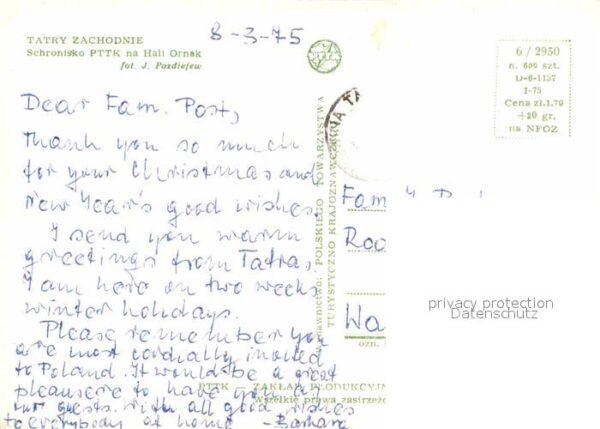 8-3-75
TATRY ZACHODNIE
Schronisko PTTK na Hali Ornak
fot. J. Pozdiejew
6/2950
n. 600 szt.
D-6-1137
I-75
Cena zł.1.70
+20 gr.
na NFOZ
Dear Fam. Post,
Thank you so much
for your Christmas and
New Year's good wishes.
I send you warm
greetings from Tatras.
I am here on two weeks
winter holidays.
Please remember you
are most cordially invited
to Poland. It would be a great
pleausere to have you as
our guests. With all good wishes
to everybody at home - Barbara
wydawnictwo: POLSKIEGO TOWARZYSTWA
TURYSTYCZNO KRAJOZNAWCZEGO
Fam
Roo
Wa
ozn.
PTTK — ZAKŁAD PRODUKCYJN
Wszelkie prawa zastrzeżo
privacy protection
Datenschutz